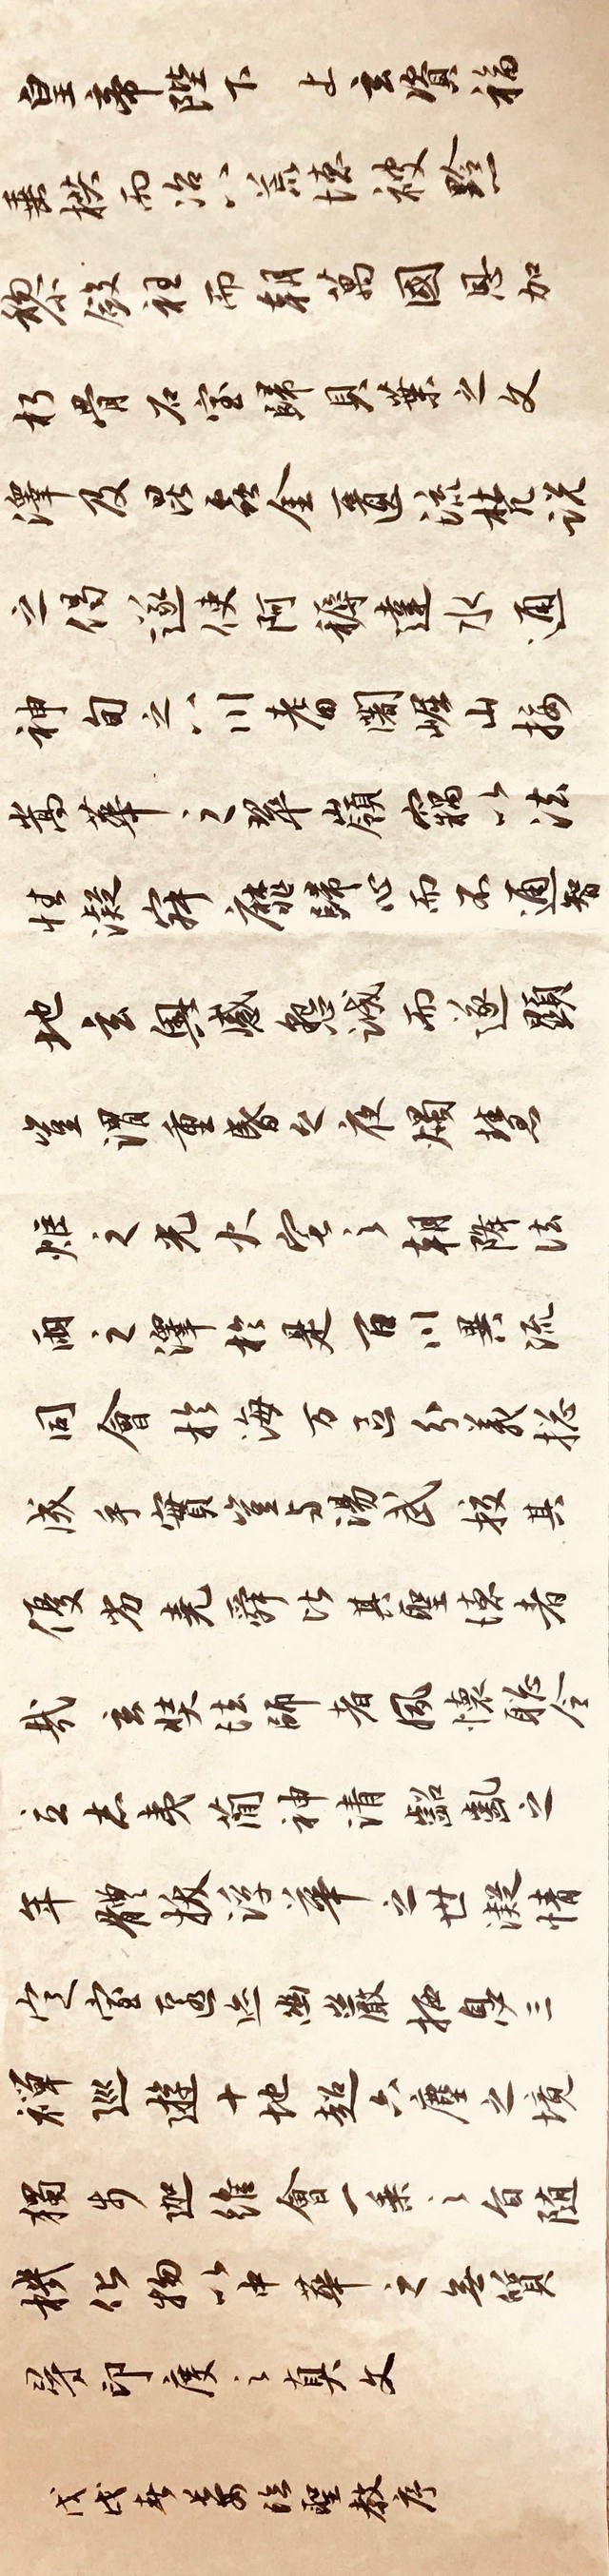 皇帝陛下上玄資福
垂拱而治八荒德被黔
黎斂衽而朝萬國恩加
朽骨石室歸貝葉之文
澤及昆蟲金匱流梵説
之偈遂使阿耨達水通
神甸之八川耆闍崛山接
嵩華之翠嶺竊以法
性凝寂靡歸心而不通智
地玄奧感懇誠而遂顯
豈謂重昏之夜燭慧
炬之光火宅之朝降法
雨之澤於是百川異流
同會於海万區分義揔
成乎實豈与湯武校其
優劣堯舜比其聖德者
哉玄奘法師者夙懷聡令
立志夷簡神清齠齔之
年體拔浮華之世凝情
定室匿迹幽巖栖息三
禪巡遊十地超六塵之境
獨步迦維會一乘之旨随
機化物以中華之無質
尋印度之真文
戊戌春臨聖教序